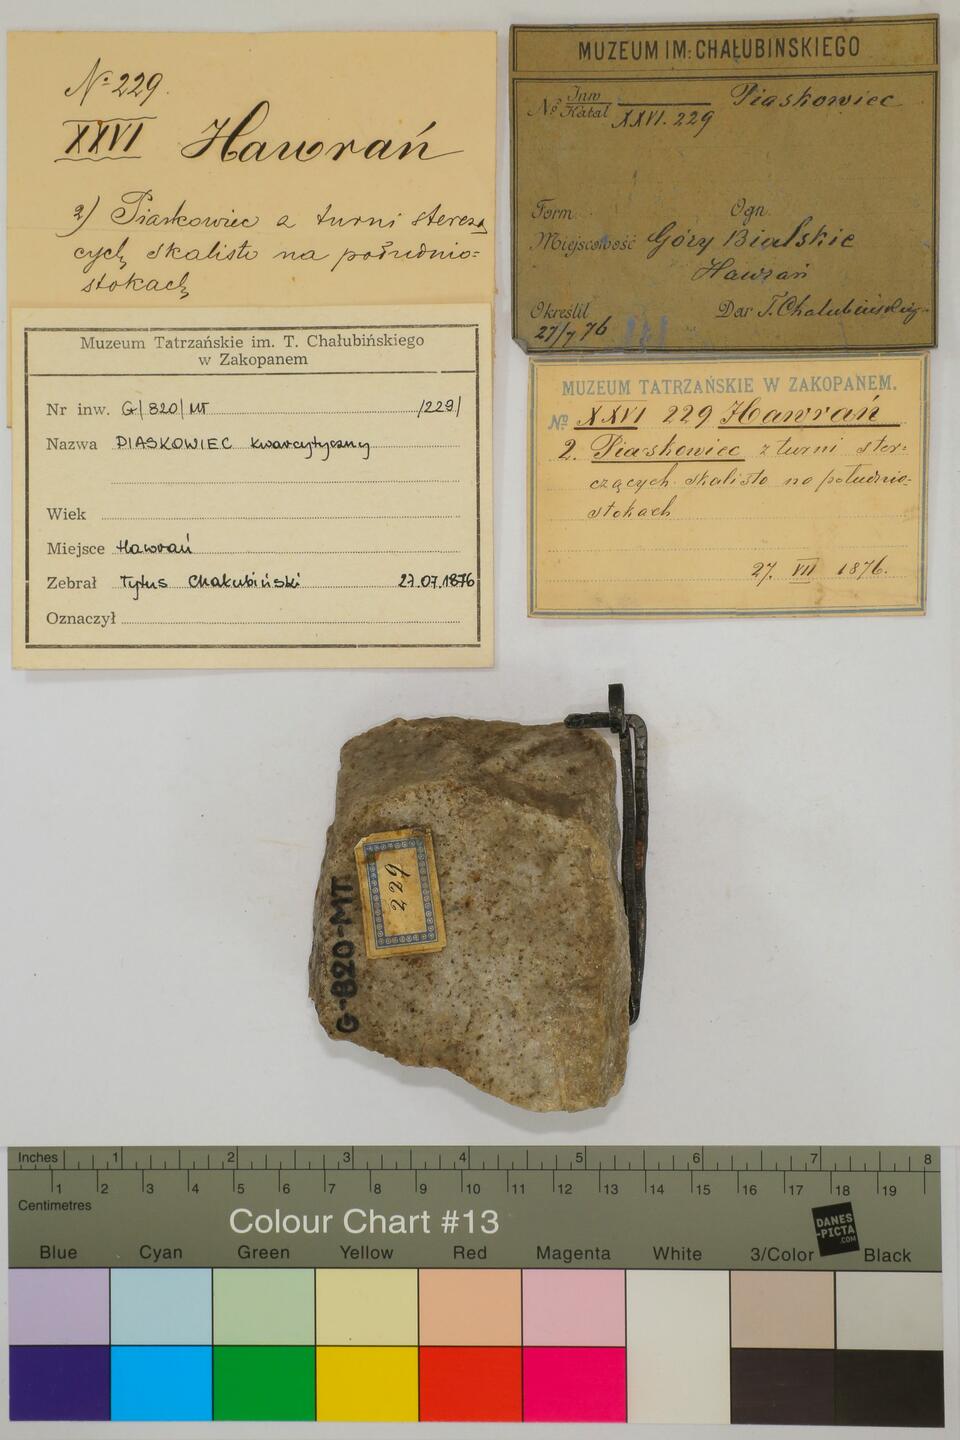 No 229.
XXVI Hawrań
2) Piaskowiec z turni sterczą
cych skalisto na południo-
stokach
MUZEUM IM: CHAŁUBINSKIEGO
No Inw
Katal XXVI. 229
Piaskowiec
Form.
Ogn.
Miejscowość Góry Bialskie
Hawrań
Określił
Dar T. Chałubińskieg.
27/7 76
Muzeum Tatrzańskie im. T. Chałubińskiego
w Zakopanem
Nr inw. G/820/MT /229/
Nazwa PIASKOWIEC kwarcytyczny
Wiek
Miejsce Hawrań
Zebrał Tytus Chałubiński 27.07.1876
Oznaczył
MUZEUM TATRZAŃSKIE W ZAKOPANEM.
No XXVI 229 Hawrań
2. Piaskowiec z turni ster-
czących skalisto na południo-
stokach
27. VII 1876.
229
G-820-MT
Inches 1 2 3 4 5 6 7 8
1 2 3 4 5 6 7 8 9 10 11 12 13 14 15 16 17 18 19
Centimetres
Colour Chart #13
DANES
-PICTA
.COM
Blue Cyan Green Yellow Red Magenta White 3/Color Black